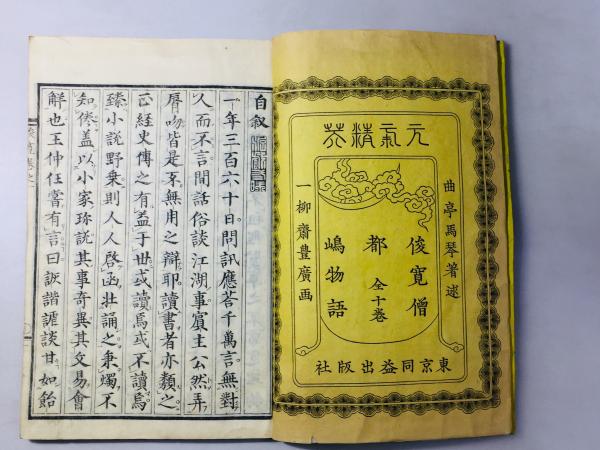 曲亭馬琴著述
俊寛僧
都
全十巻
嶋物語
一柳齋豊廣画
東京同益出版社
自叙
一年三百六十日問訊應荅千萬言無對
人而不言閒話俗談江湖事賓主公然弄
脣吻皆是不無用之辯耶讀書者亦類之
正經史傳之有益于世或讀焉或不讀焉
臻小說野乗則人人啓函壮誦之秉燭不
知倦盖以小家珎說其事奇異其文易會
解也王仲任嘗有言曰詼諧談甘如飴